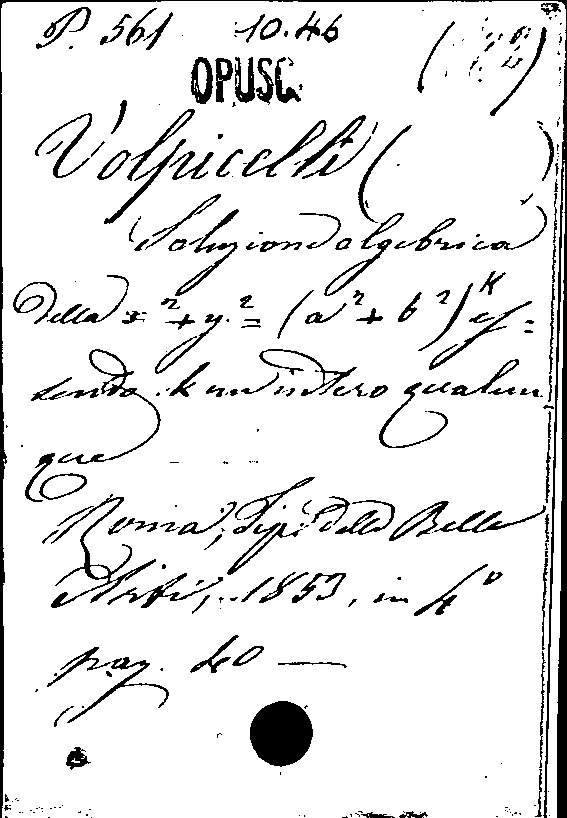 P. 561 10.46
OPUSC.
Volpicelli ( )
Soluzione algebrica
della x² + y.² = (a² + b²)ᴷ es=
sendo k un intero qualun
que
Roma, Tip. delle Belle
Arti, 1853, in 4°
pag. 40 —